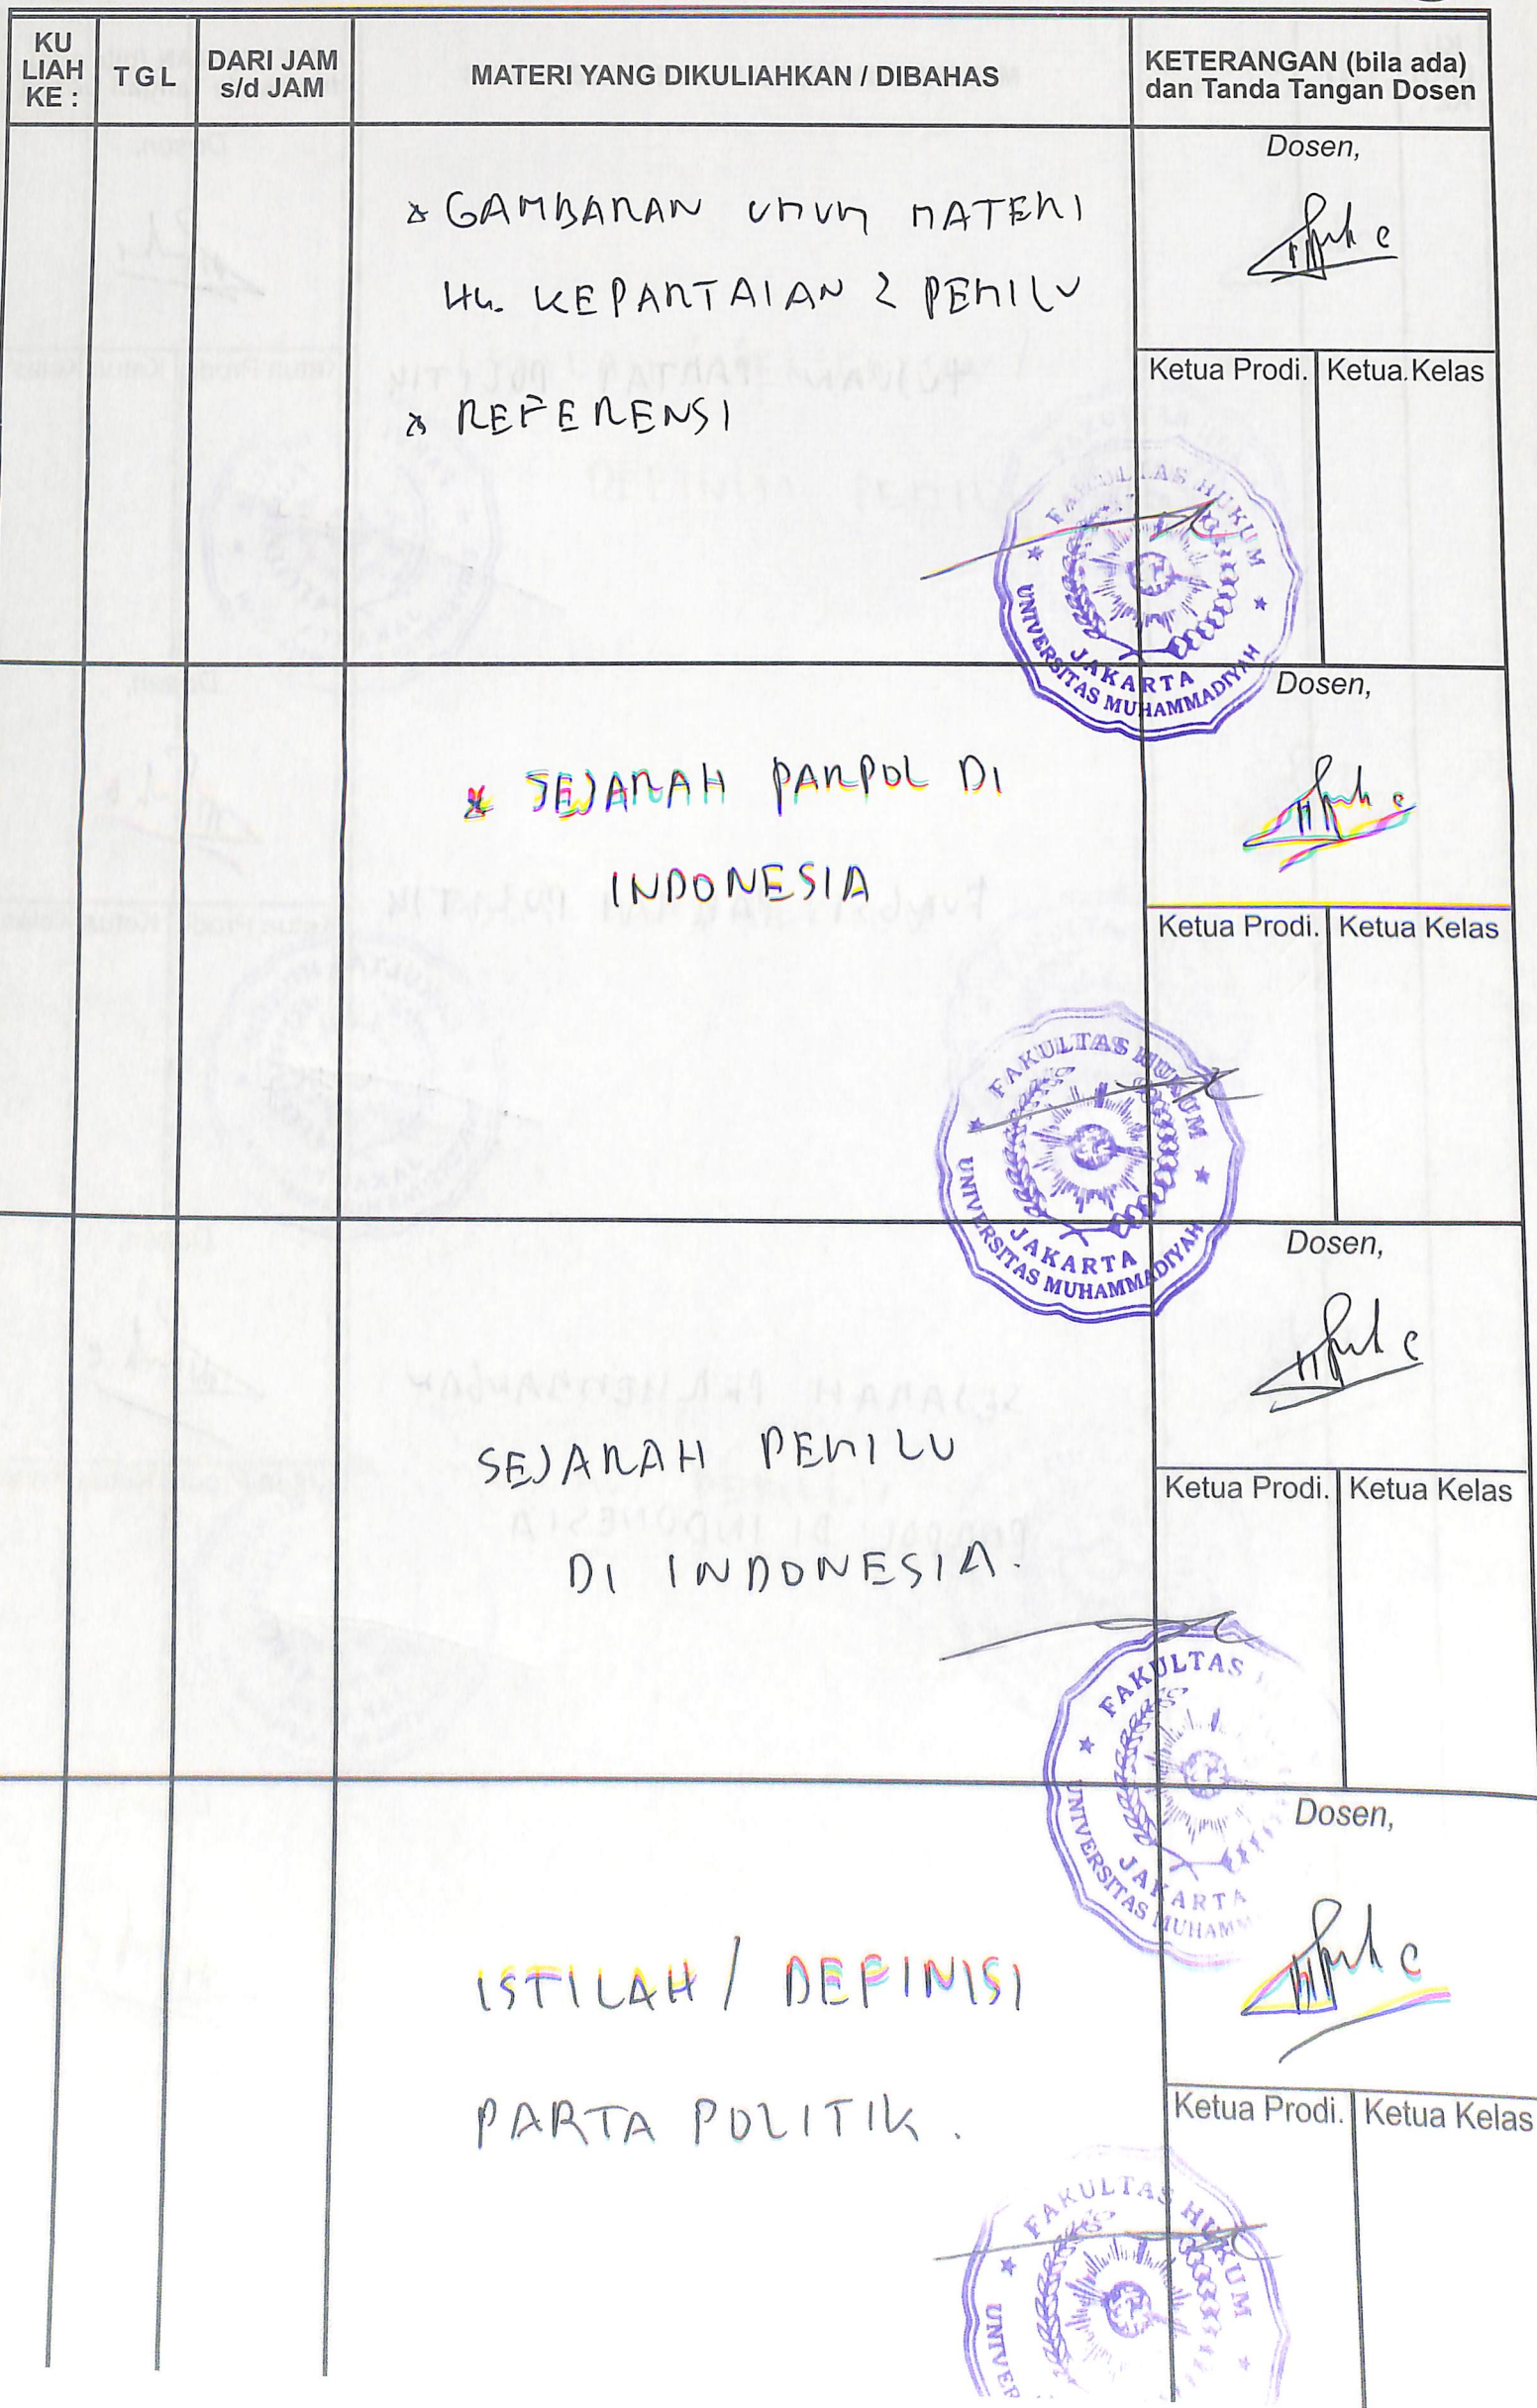 KU LIAH KE :
TGL
DARI JAM s/d JAM
MATERI YANG DIKULIAHKAN / DIBAHAS
KETERANGAN (bila ada) dan Tanda Tangan Dosen
* GAMBARAN UMUM MATERI
HK. KEPARTAIAN & PEMILU
* REFERENSI
Dosen,
Ketua Prodi.
Ketua.Kelas
FAKULTAS HUKUM
UNIVERSITAS MUHAMMADIYAH
JAKARTA
* SEJARAH PARPOL DI
INDONESIA
Dosen,
Ketua Prodi.
Ketua Kelas
FAKULTAS HUKUM
UNIVERSITAS MUHAMMADIYAH
JAKARTA
SEJARAH PEMILU
DI INDONESIA.
Dosen,
Ketua Prodi.
Ketua Kelas
FAKULTAS
UNIVERSITAS MUHAMM
JAKARTA
ISTILAH / DEFINISI
PARTA POLITIK .
Dosen,
Ketua Prodi.
Ketua Kelas
FAKULTAS HUKUM
UNIVER